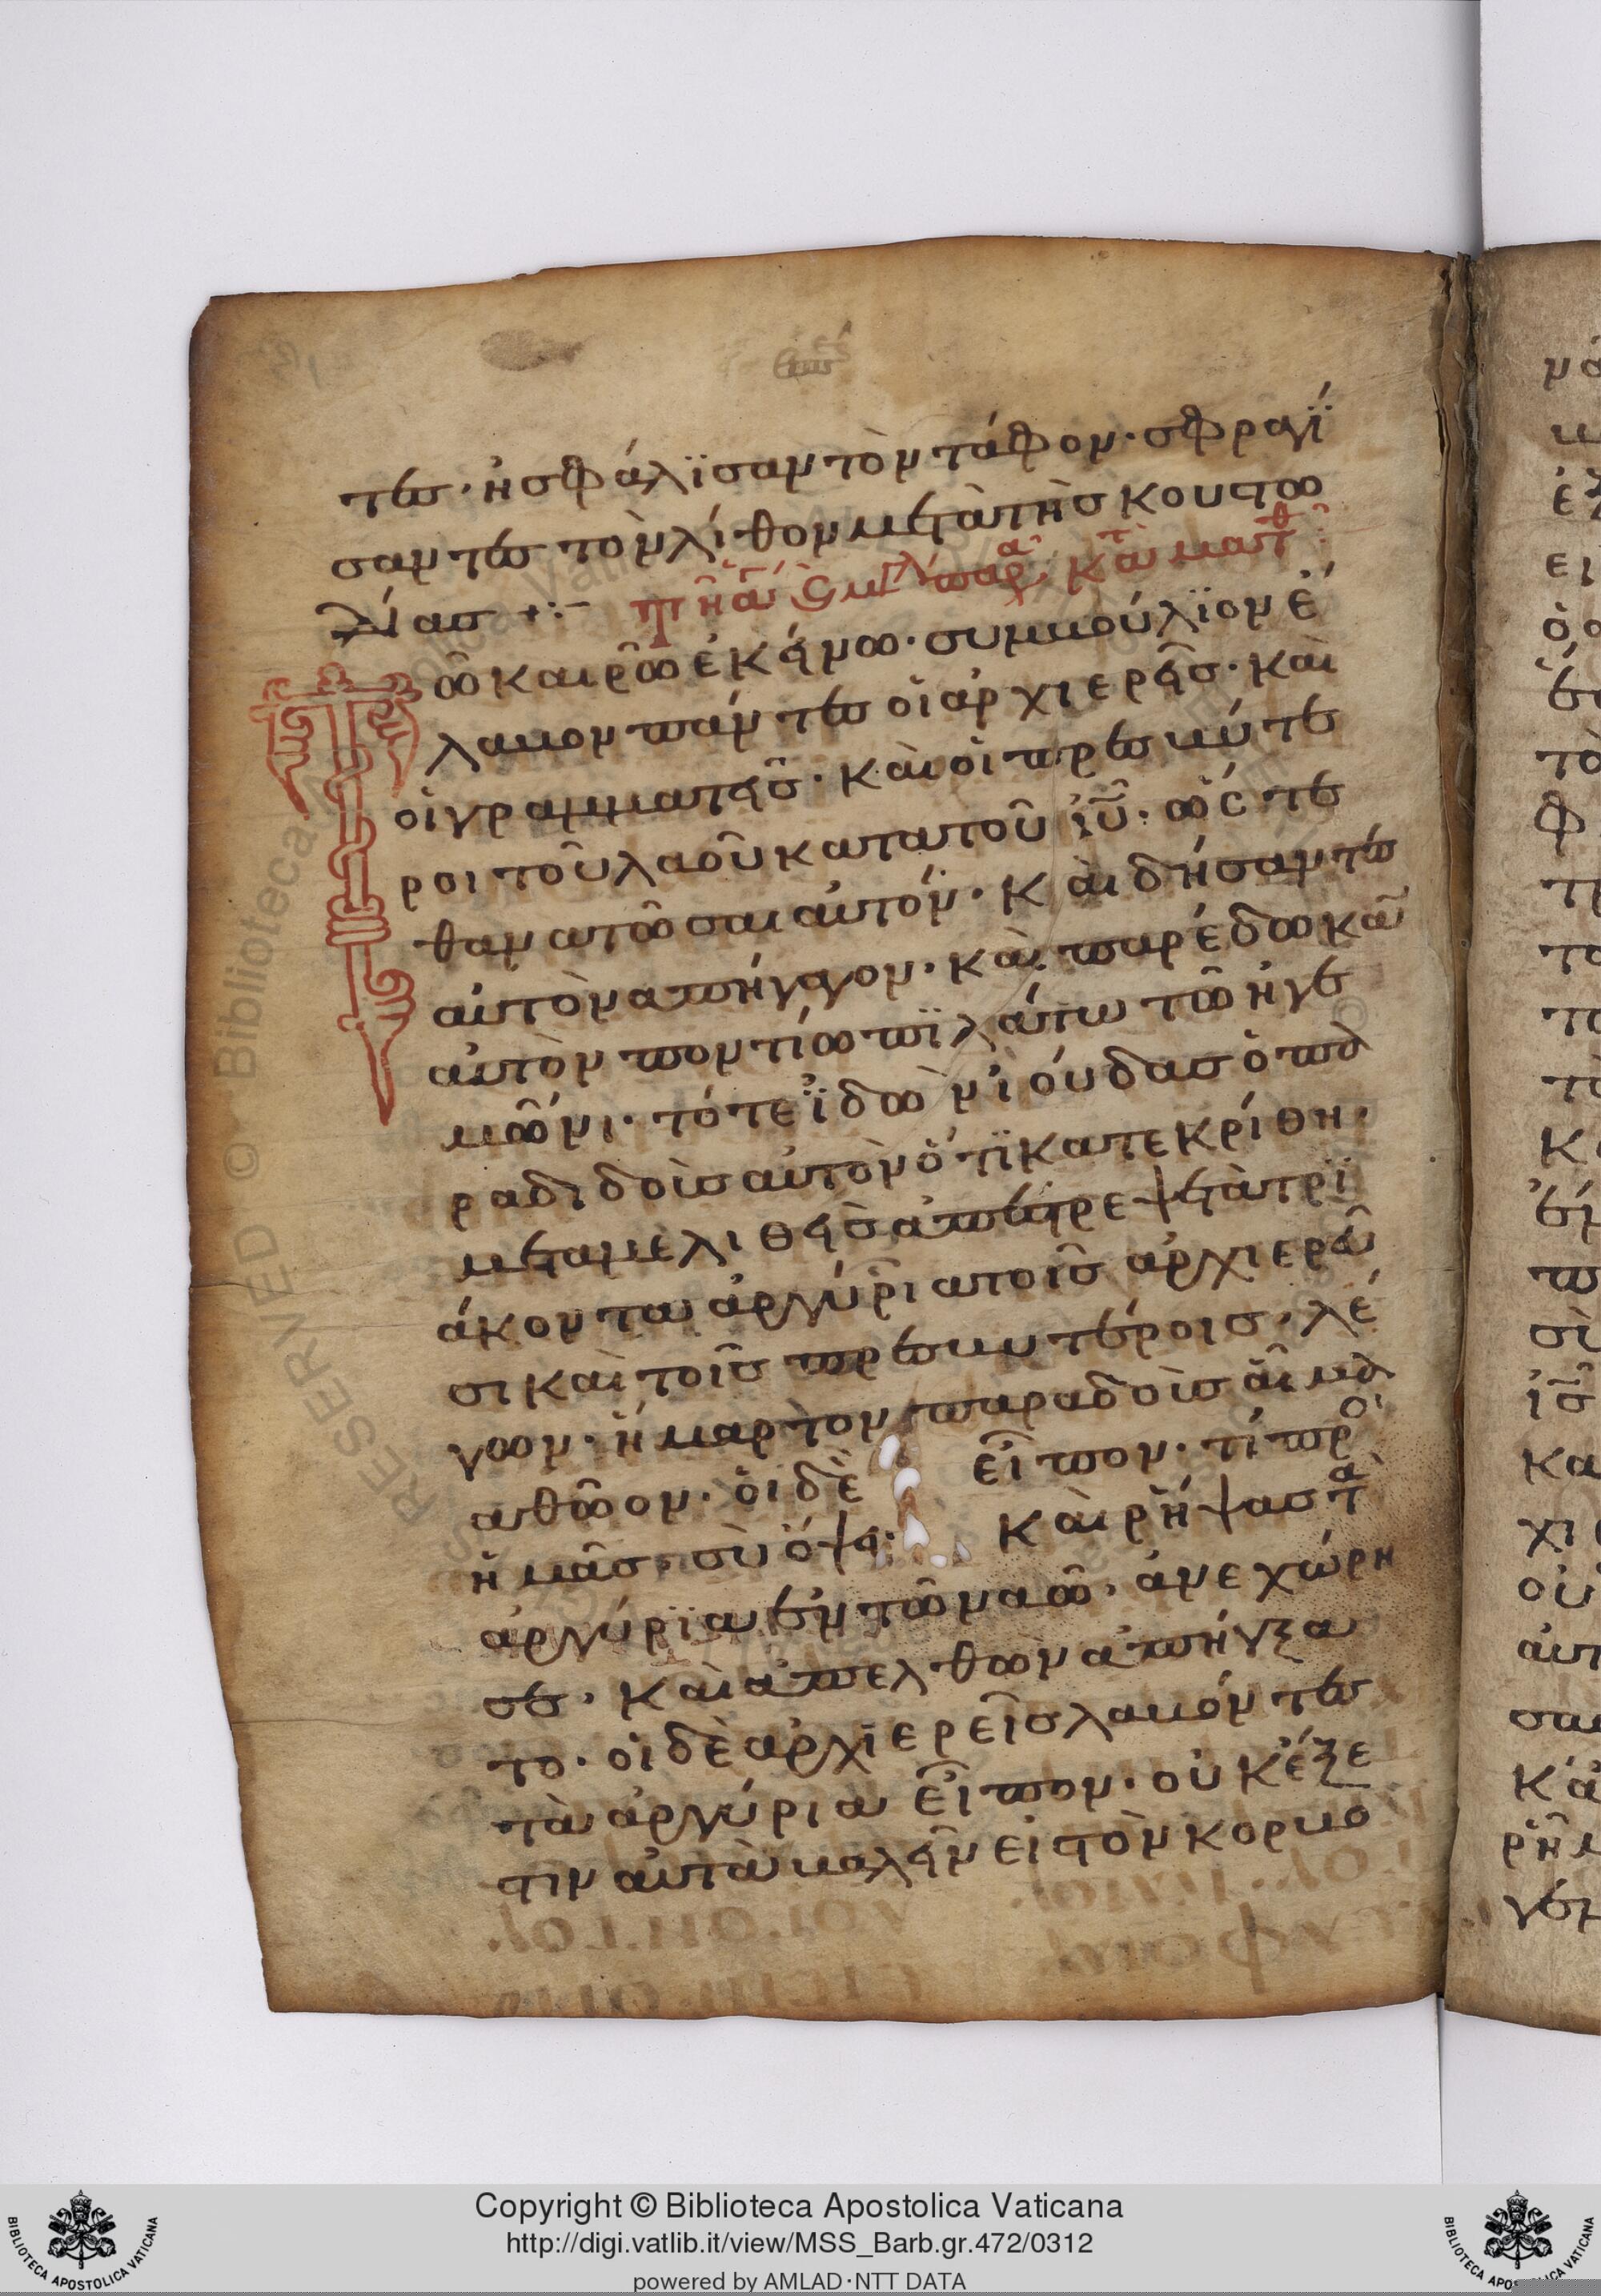 τες· ἠσφάλϊσαν τὸν τάφον· σφραγΐ
σαντες τὸν λίθον μετὰ τῆς κουστω
δίας +:–
ῶ καιρῶ ἐκείνω· συμβούλϊον ἔ
λαβον πάντες οἱ ἀρχιερεῖς· καὶ
οἱ γραμματεῖς· καὶ οἱ πρεσβύτε
ροι τοῦ λαοῦ κατα τοῦ ἰῦ· ὥστε
θανατῶσαι αὐτόν· καὶ δήσαντες
αὐτὸν ἀπήγαγον· καὶ παρέδωκαν
αὐτὸν ποντίω πϊλάτω τῶ ἡγε
μῶνι· τότε ἰ̈δὼν ἰούδας ὁ πα
ραδιδοὶς αὐτὸν ὅτϊ κατεκρίθη·
μεταμελιθεὶς ἀπέστρεψε τὰ τρϊ
άκοντα ἀργύρια τοῖς ἀρχιερεῦ
σι καὶ τοῖς πρεσβυτέροις· λέ
γων· ἥμαρτον παραδοὶς αἷμα
αθῶον· οἱ δὲ εἶπον· τί πρὸ
ἡμᾶς· σὺ ὄψει· καὶ ρήψας τὰ
ἀργύρϊα ἐν τῶ ναῶ· ἀνεχώρη
σε· καὶ ἀπελθὼν ἀπήγξα
το· οἱ δὲ ἀρχϊερεῖς λαβόντες
τὰ ἀργύρια εἶπον· οὐκ ἔξε
στιν αὐτὰ βαλεῖν εἰς τὸν κορβο
Copyright © Biblioteca Apostolica Vaticana
http://digi.vatlib.it/view/MSS_Barb.gr.472/0312
powered by AMLAD·NTT DATA